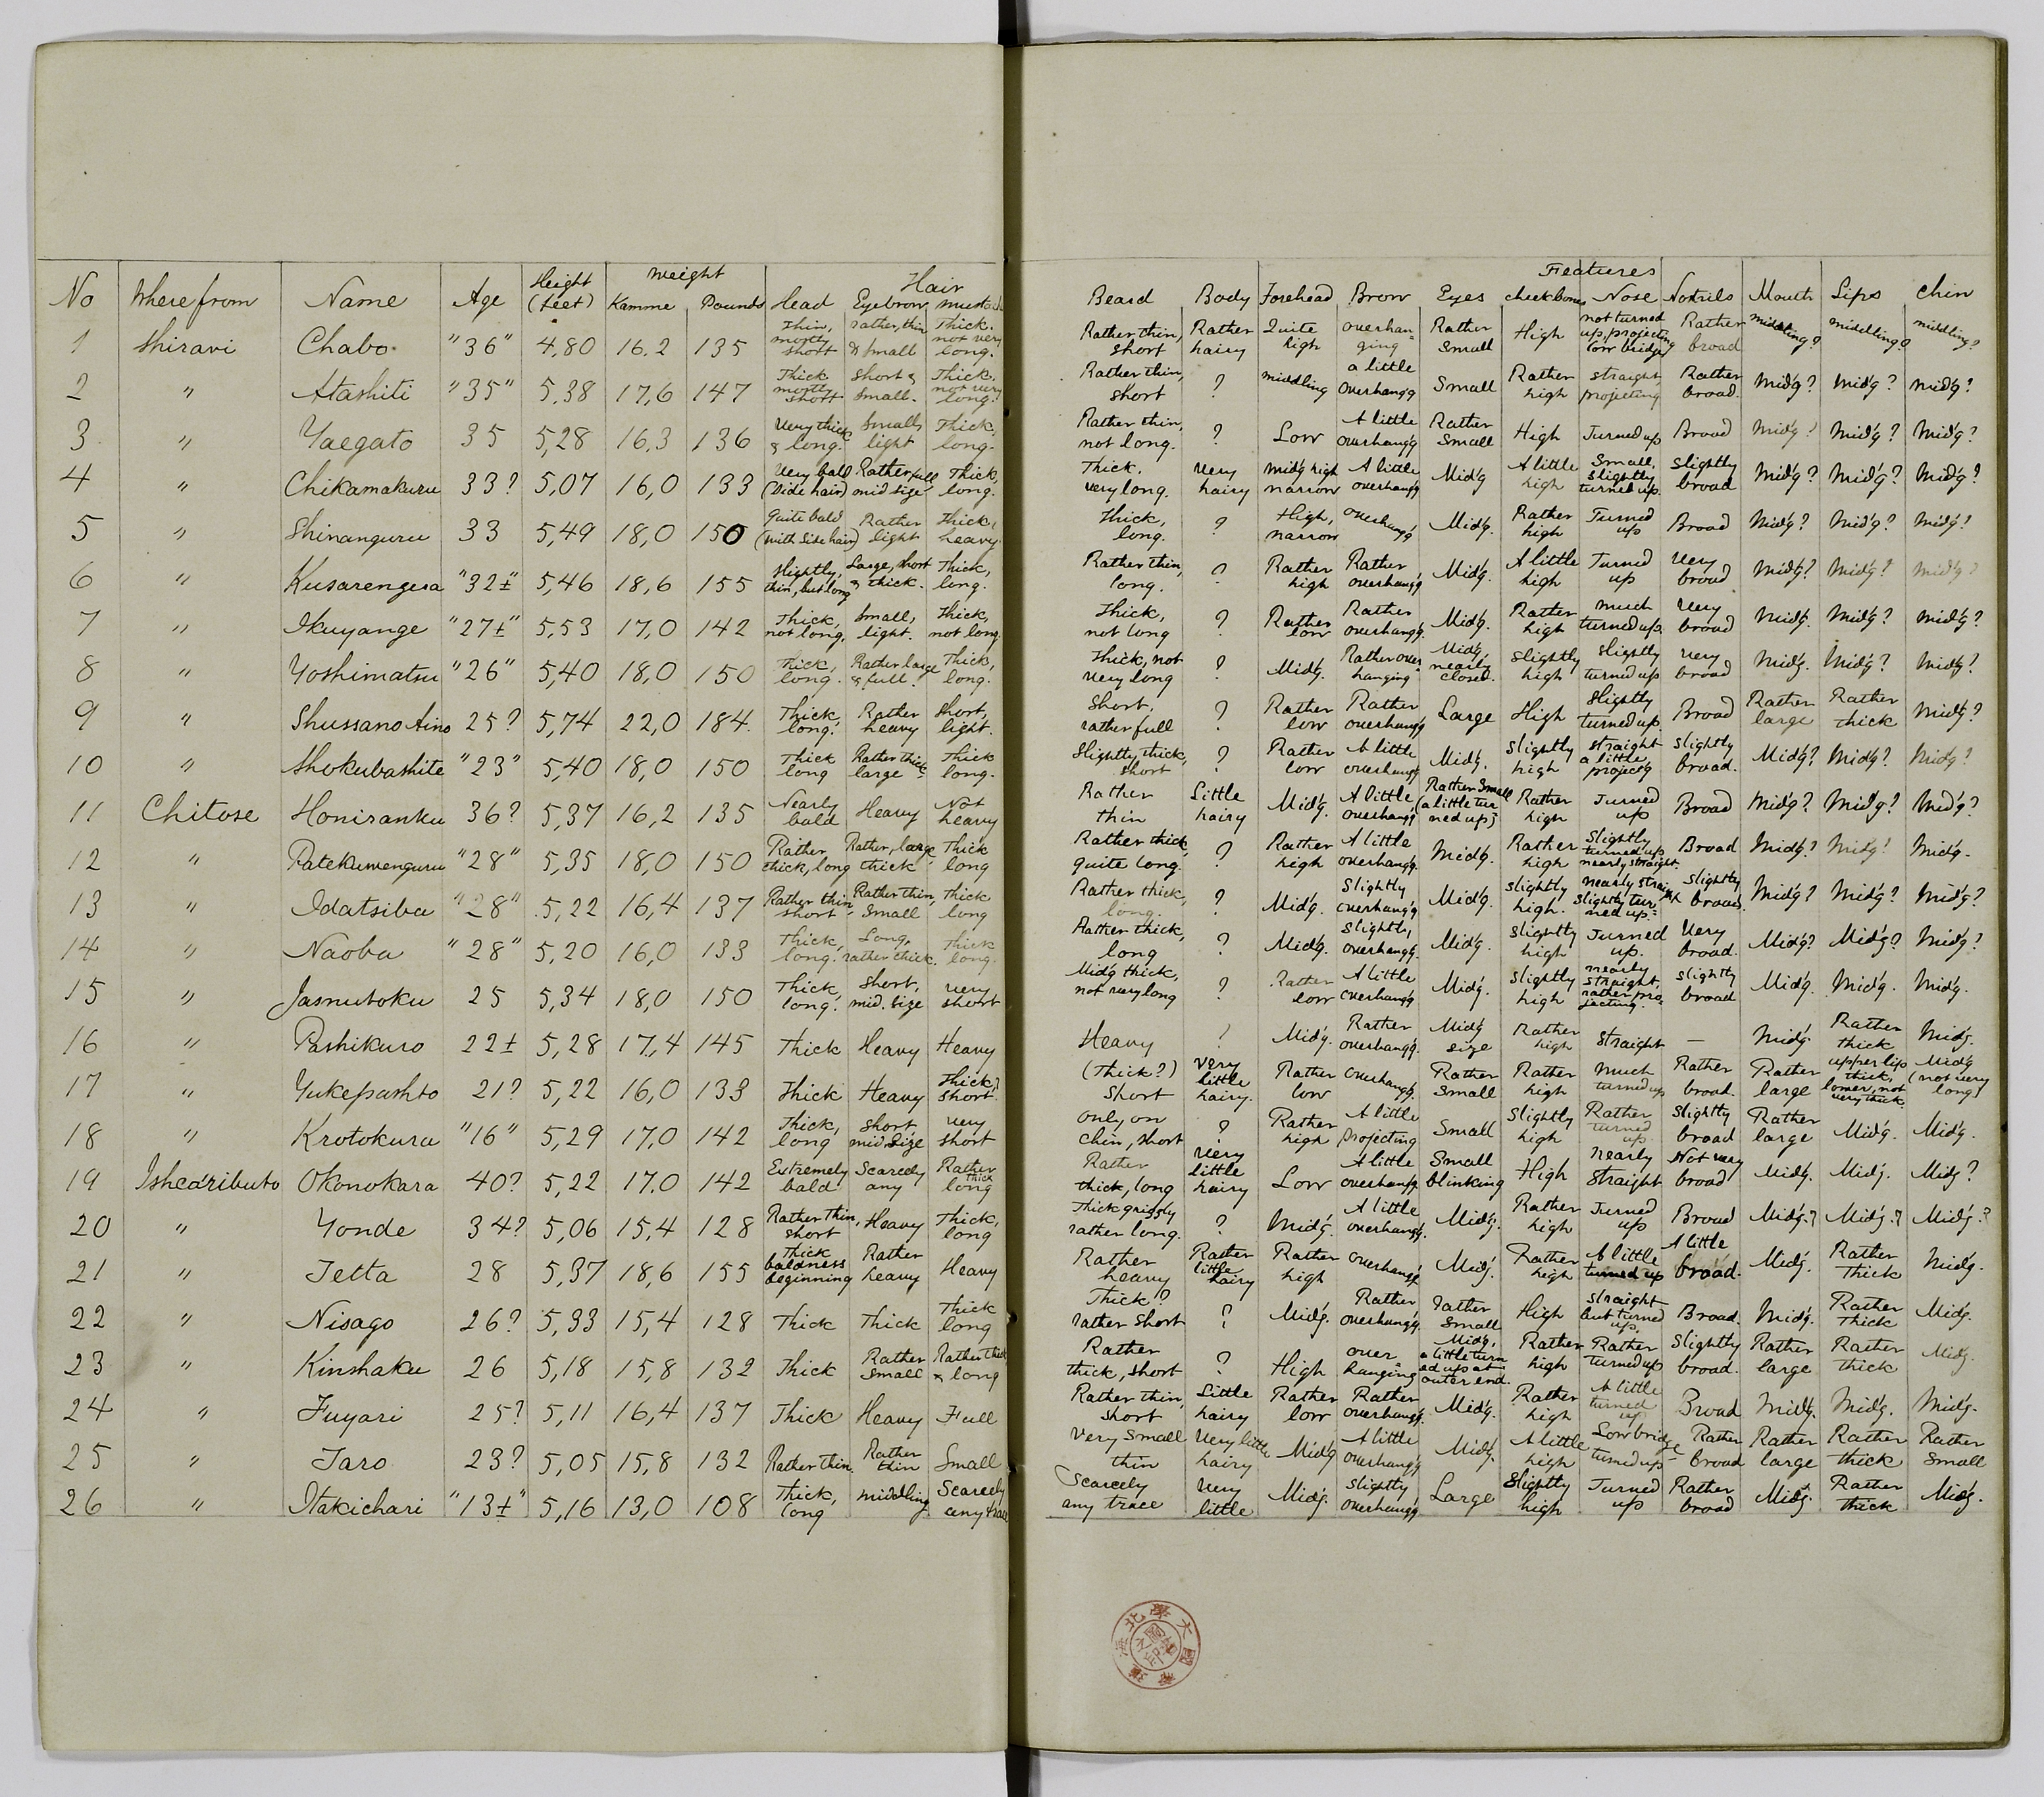 No Where from Name Age Height (feet) Weight Kamme Pounds Hair Head Eyebrow Beard Body Features Forehead Brow Eyes cheekbones Nose Nostrils Mouth Lips Chin
1 Shiravi Chabo "36" 4,80 16.2 135 Thin, mostly short rather, thin & small Thick. not very long. Rather thin, short Rather hairy Quite high overhanging Rather Small High not turned up, projecting low bridge Rather broad middling? middling? middling?
2 " Atashiti "35" 5,38 17,6 147 Thick mostly short Short & small. Thick. not very long. Rather thin, short ? middling a little overhang'g Small Rather high straight, projecting Rather broad. mid'g? mid'g? mid'g?
3 " Yaegato 35 5,28 16.3 136 Very thick & long. Small, light Thick, long. Rather thin, not long. ? Low A little overhang'g Rather Small High Turned up Broad Mid'g? Mid'g? Mid'g?
4 " Chikamakuru 33? 5,07 16,0 133 Very bald (Side hair) Rather full, mid size Thick, long. Thick. very long. Very hairy Mid'g high narrow A little overhang'g Mid'g A little high Small, slightly turned up. Slightly broad Mid'g? Mid'g? Mid'g?
5 " Shinanguru 33 5,49 18,0 150 Quite bald (with Side hair) Rather light Thick, heavy. Thick, long. ? High, narrow overhang'g Mid'g. Rather high Turned up Broad Mid'g? Mid'g? Mid'g?
6 " Kusarengesa "32±" 5,46 18,6 155 Slightly, thin, but long Large, short & thick. Thick, long. Rather thin, long. ? Rather high Rather overhang'g Mid'g. A little high Turned up Very broad Mid'g? Mid'g? Mid'g?
7 " Ikuyange "27±" 5,53 17,0 142 Thick, not long. Small, light. Thick, not long. Thick, not long ? Rather low Rather overhang'g. Mid'g. Rather high much turned up. Very broad Mid'g. Mid'g? mid'g?
8 " Yoshimatsu "26" 5,40 18,0 150 Thick, long. Rather large & full. Thick, long. Thick, not very long ? Mid'g. Rather overhanging Mid'g, nearly closed. Slightly high Slightly turned up very broad Mid'g. Mid'g? Mid'g?
9 " Shussano Aino 25? 5,74 22,0 184. Thick, long. Rather heavy Short, light. Short, rather full ? Rather low Rather overhang'g Large High Slightly turned up. Broad Rather large Rather thick Mid'g?
10 " Shokubashite "23" 5,40 18,0 150 Thick long Rather thick large Thick long. Slightly, thick, short ? Rather low A little overhang'g Mid'g. Slightly high straight a little project'g Slightly broad. Mid'g? Mid'g? Mid'g?
11 Chitose Honiranku 36? 5,37 16,2 135 Nearly bald Heavy Not heavy Rather thin Little hairy Mid'g. A little overhang'g Rather Small (a little turned up) Rather high Turned up Broad Mid'g? Mid'g? Mid'g?
12 " Patekumenguru "28" 5,35 18,0 150 Rather thick, long Rather, large, thick Thick long Rather thick, quite long. ? Rather high A little overhang'g. Mid'g. Rather high Slightly turned up nearly straight. Broad Mid'g? Mid'g? Mid'g.
13 " Idatsiba "28" 5,22 16,4 137 Rather thin, short Rather thin, Small Thick long Rather thick, long. ? Mid'g. Slightly overhang'g Mid'g. Slightly high. nearly straight slightly turned up. Slightly broad. Mid'g? Mid'g? Mid'g?
14 " Naoba "28" 5,20 16,0 133 Thick, long. Long, rather thick. Thick long. Rather thick, long ? Mid'g. Slightly, overhang'g. Mid'g. Slightly high Turned up. Very broad. Mid'g? Mid'g? Mid'g?
15 " Jasnutoku 25 5,34 18,0 150 Thick, long. Short, mid. size very short Mid'g thick, not very long ? Rather low A little overhang'g Mid'g. Slightly high nearly straight, rather projecting. Slightly broad Mid'g. Mid'g. Mid'g.
16 " Pashikuro 22± 5,28 17,4 145 Thick Heavy Heavy Heavy ? Mid'g. Rather overhang'g. Mid'g size Rather high straight — Mid'g Rather thick Mid'g.
17 " Yukepashto 21? 5,22 16,0 133 Thick Heavy Thick? short. (Thick?) Short Very little hairy. Rather low overhang'g. Rather Small Rather high Much turned up Rather broad. Rather large upper lip thick, lower, not very thick. Mid'g (not very long)
18 " Krotokuru "16" 5,29 17,0 142 Thick, long short mid. size very short only on chin, short ? Rather high A little projecting Small Slightly high Rather turned up. Slightly broad Rather large Mid'g. Mid'g.
19 Okonokara 40? 5,22 17.0 142 Extremely bald Scarcely any Rather thick long Rather thick, long Very little hairy Low A little overhang'g. Small blinking High nearly straight Not very broad Mid'g. Mid'g. Mid'g?
20 " Yonde 34? 5,06 15,4 128 Rather thin, short Heavy Thick, long Thick grizzly rather long. ? Mid'g. A little overhang'g. Mid'g. Rather high Turned up Broad Mid'g.? Mid'g.? Mid'g.?
21 " Tetta 28 5,37 18,6 155 Thick baldness beginning Rather heavy Heavy Rather heavy Rather little hairy Rather high overhang'g Mid'g. Rather high A little turned up A little broad. Mid'g. Rather thick Mid'g.
22 " Nisago 26? 5,33 15,4 128 Thick Thick Thick long Thick? rather short ? Mid'g. Rather, overhang'g. rather Small High straight but turned up. Broad. Mid'g. Rather thick Mid'g.
23 " Kinshaku 26 5,18 15,8 132 Thick Rather Small Rather thick & long Rather thick, short ? High overhanging Mid'g, a little turned up at outer end. Rather high Rather turned up Slightly broad. Rather large Rather thick Mid'g.
24 " Fuyari 25? 5,11 16,4 137 Thick Heavy Full Rather thin, short Little hairy Rather low Rather overhang'g. Mid'g. Rather high A little turned up Broad Mid'g. Mid'g. Mid'g.
25 " Taro 23? 5,05 15,8 132 Rather thin. Rather thin Small Very Small thin Very little hairy Mid'g A little overhang'g Mid'g. A little high Low bridge turned up Rather broad Rather large Rather thick Rather Small
26 " Itakichari "13±" 5,16 13,0 108 Thick, long middling Scarcely any trace Scarcely any trace Very little Mid'g. Slightly, overhang'g Large Slightly high Turned up Rather broad Mid'g. Rather thick Mid'g.